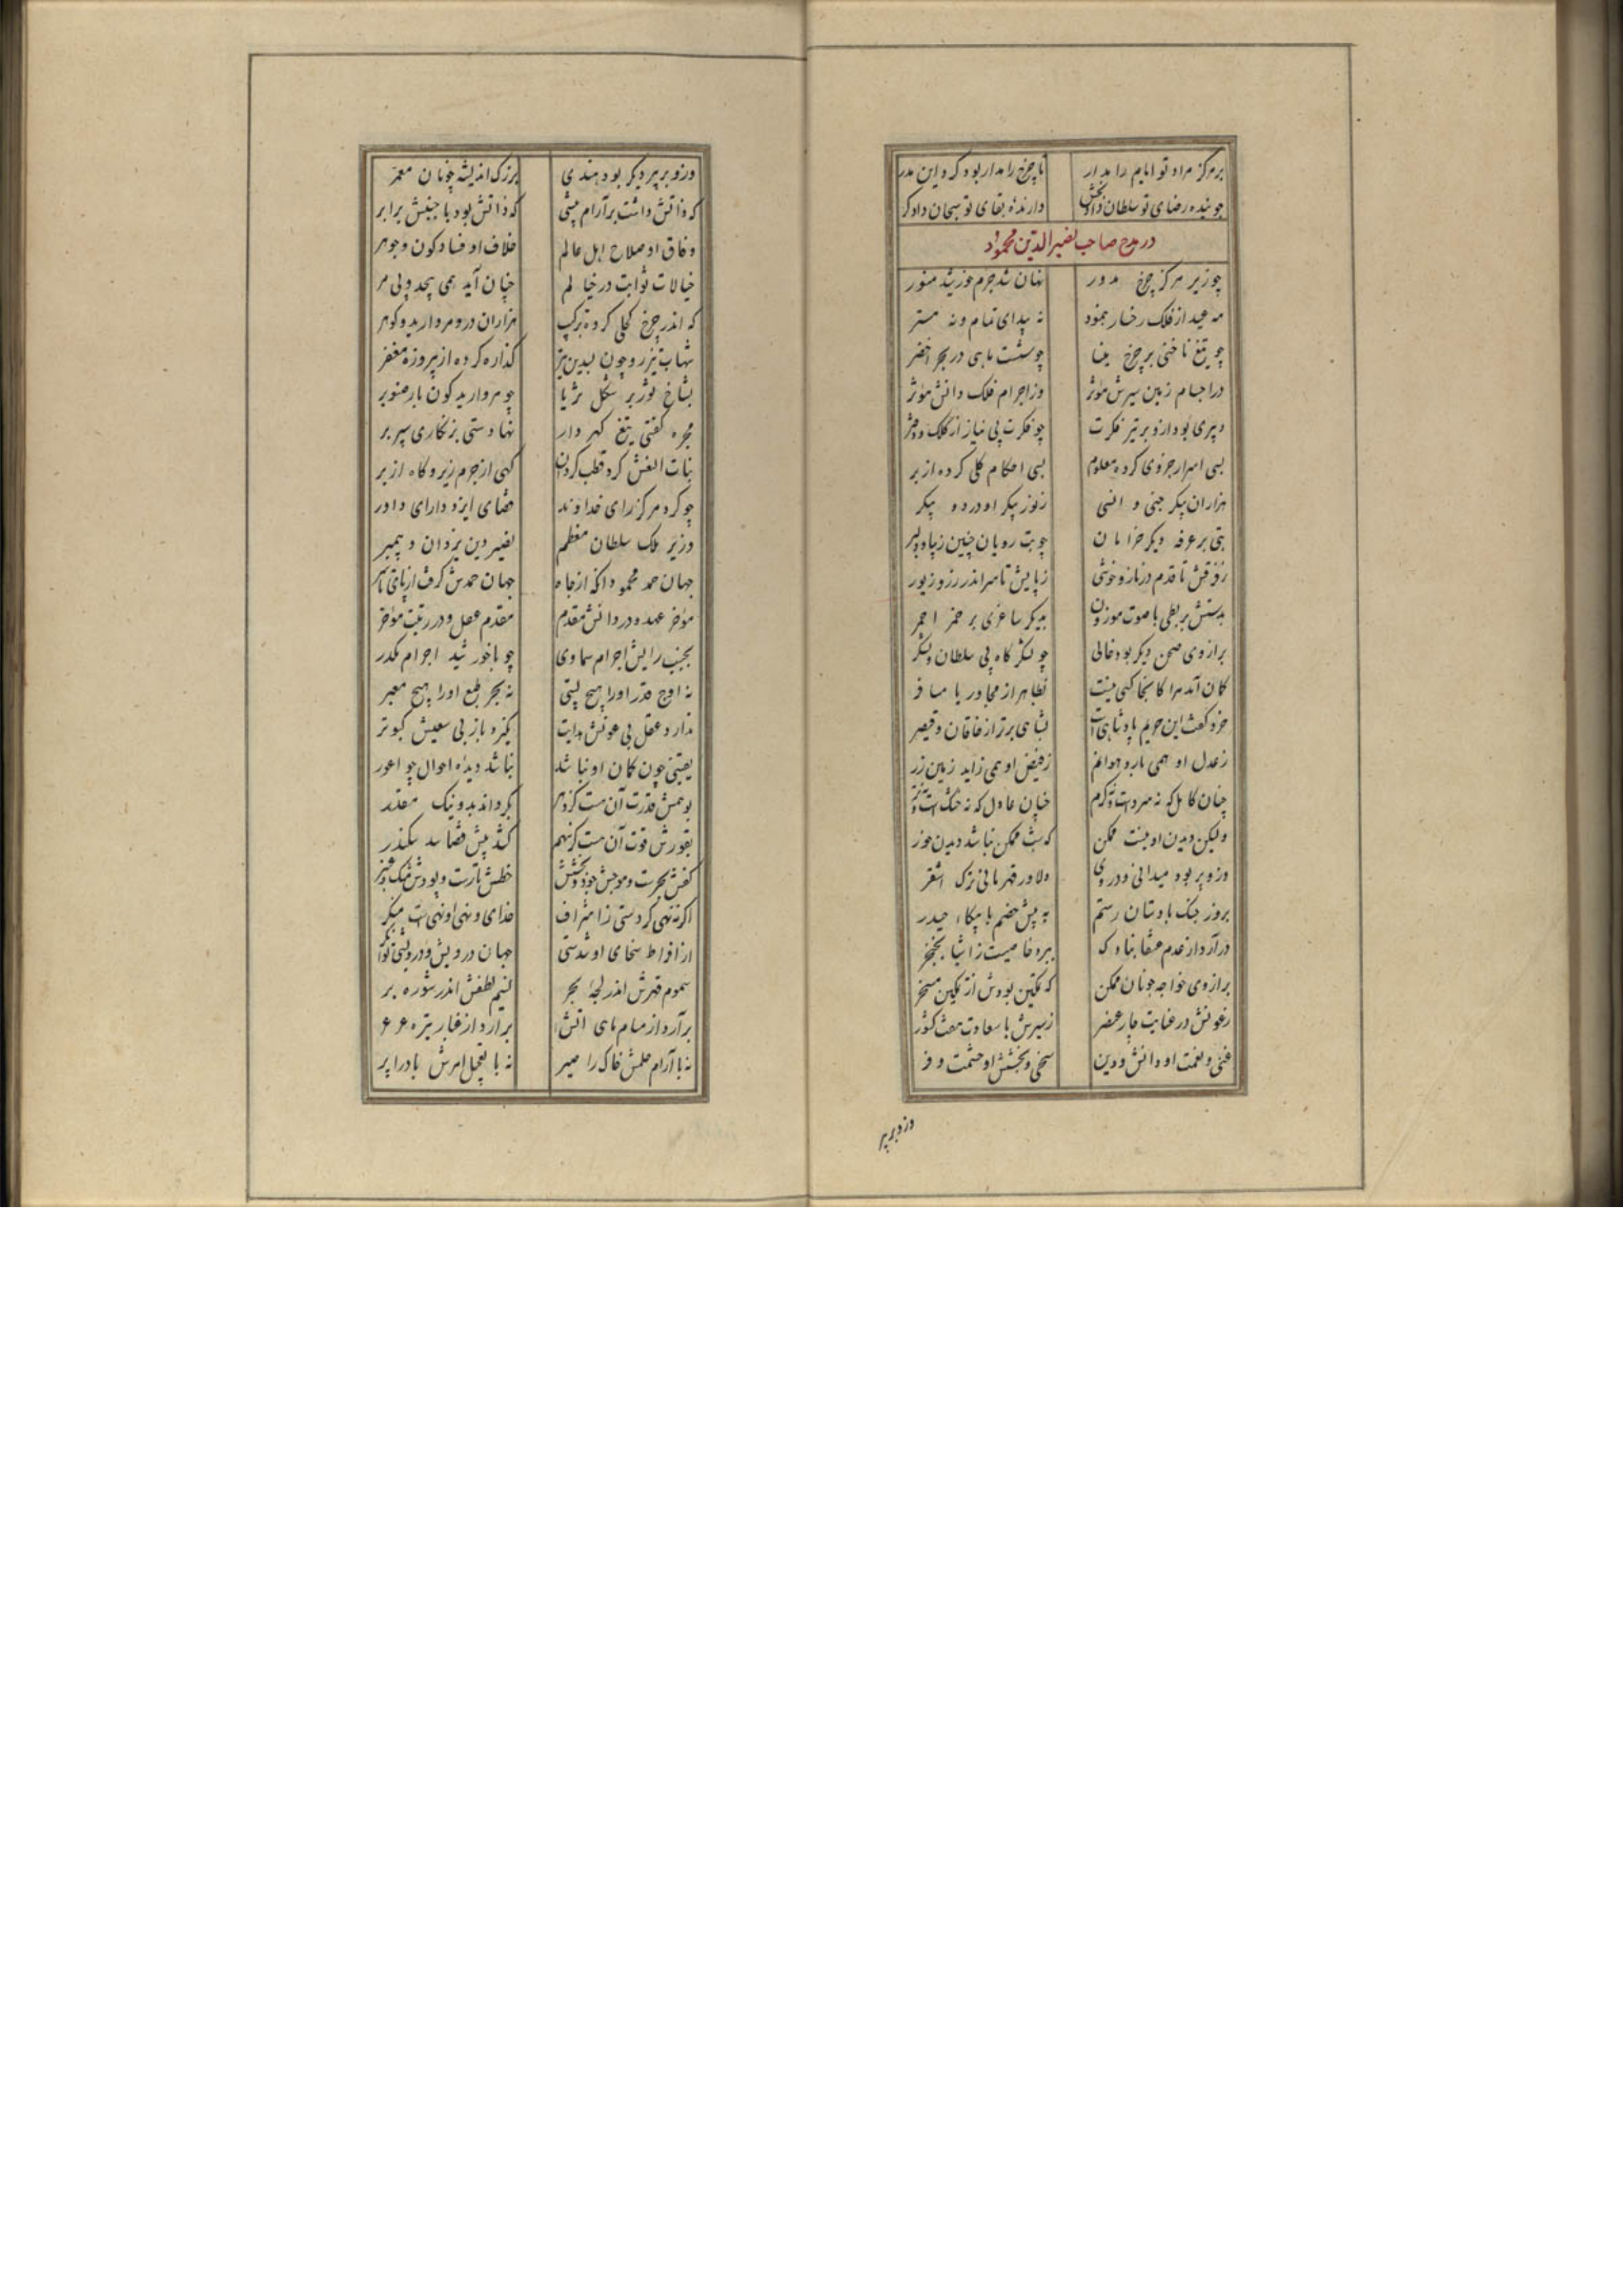 بر مرکز مراد تو ایام را مدار تا چرخ را مدار بود گرد این مدر
جوینده رضای تو سلطان دادبخش دارنده بقای تو سبحان دادکر
در مدح صاحب نصیر الدین محمود
چو زیر مرکز چرخ مدور نهان شد جرم خورشید منور
مه عید از فلک رخسار بنمود نه پیدای تمام و نه مستر
چو تیغ ناخنی بر چرخ مینا چو شست ماهی در بحر اخضر
در اجسام زمین سیرش مؤثر وز اجرام فلک دانش موثر
دبیری بود ازو برتر نیز فکرت چو فکرت بی نیاز از کلک و دفتر
بسی اسرار جزوی کرده معلوم بسی احکام کلی کرده از بر
هزاران پیکر جنی و انسی ز نور پیکر او در دو پیکر
بتی بر غرفه دیکر خرامان چو بت رویان چین زیبا و دلبر
ز فرقش تا قدم در ناز و خوشی ز پایش تا سر اندر زر و زیور
بدستش بربطی با صوت موزون بدیکر ساغری بر خمر احمر
برازوی صحن دیکر بود خالی چو لشکر گاه بی سلطان و لشکر
کمان آمد مرا کانجا کسی نیست بظاهر از مجاور یا مسافر
خرد گفت این حریم پادشاهی است بشاهی برتر از خاقان و قیصر
ز عدل او همی بارد هوا نم ز فیض او همی زاید زمین زر
چنان کامل که نه سردست و نه کرم چنان عادل که نه خشک است و نه تر
ولیکن دیدن او نیست ممکن که شب ممکن نباشد دیدن خور
وزو بر بود میدانی و در وی دلاور قهرمانی ترک اشقر
بروز جنک با دستان رستم به پیش خصم با پیکار حیدر
در آرد از عدم عنقا بناوک ببرد خاصیت ز اشیا بخنجر
برازوی خواجه چونان ممکن که تمکین بودش از تمکین مسخر
ز عونش در عنایت چار عنصر ز سیرش با سعادت هفت کشور
غنی و نعمت او دانش و دین سخی و بخشش او حشمت و فر
وزو بر پیر
وزو بر پیر دیکر بود هندی بزرک اندیشه چونان معمر
که ذاتش داشت بر آرام پیشی که ذاتش بود با جنبش برابر
وفاق او صلاح اهل عالم خلاف او فساد کون و جوهر
خیالات ثوابت در خیالم چنان آید همی بیحد و بی مر
که اندر چرخ کحلی کرده ترکیب هزاران در و مروارید و کوهر
شهاب تیزرو چون بسدین تیر کذاره کرده از پیروزه مغفر
بشاخ ثور بر شکل ثریا چو مروارید کون بار صنوبر
مجره کفتی تیغ کهر دار نهادستی بزنکاری سپر بر
بنات النعش کرد قطب کردان کهی از جرم زیر و کاه از بر
چو کرد مرکز رای خداوند قضای ایزد دارای داور
وزیر ملک سلطان معظم نصیر دین یزدان و پیمبر
جهان حمد محمود انکه از جاه جهان حمدش گرفت از پای تا سر
مؤخر عهد و در دانش مقدم مقدم عقل و در رتبت مؤخر
بجنب رایش اجرام سماوی چو با خورشید اجرام مکدر
نه اوج قدر اورا هیچ پستی نه بحر طبع اورا هیچ معبر
ندارد عقل بی عونش هدایت نکیرد باز بی سعیش کبوتر
یقینی چون کمان او نباشد نباشد دیده احوال چو اعور
بوهمش قدرت آن هست کز دهر بگرداند بد و نیک مقدر
بقورش قوت آن هست کز فهم کشد پیش قضا سد سکندر
کفش بحرست و موجش جود و بخشش خطش تارست و پودش مشک و عنبر
اکر نه نهی کردستی ز اسراف خدای و نهی او نهی است منکر
از افراط سخای او شدستی جهان درویش و درویشی توانکر
سموم قهرش اندر لجه بحر نسیم لطفش اندر شوره بر
برآرد از مسام ماهی آتش برآرد از غبار تیره عرعر
نه با آرام حلمش خاک را صبر نه با تعجیل امرش باد را پر